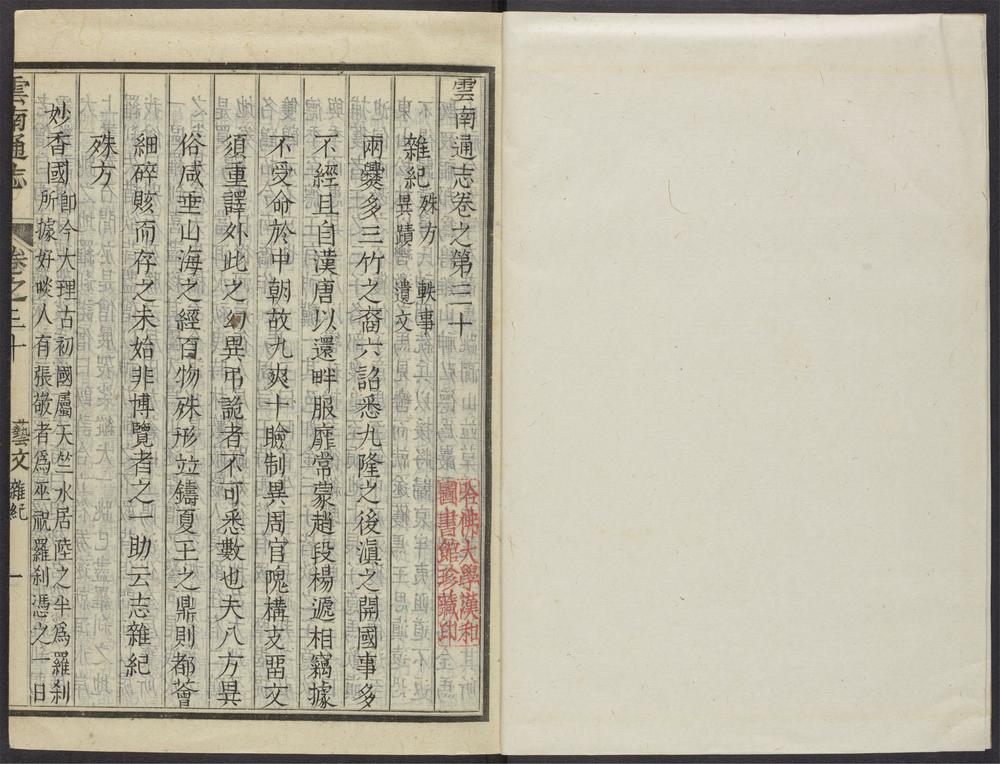 雲南通志卷之第三十
雜紀 殊方 軼事
異蹟 遺文
兩爨多三竹之裔六詔悉九隆之後滇之開國事多
不經且自漢唐以還畔服靡常蒙趙段楊遞相竊據
不受命於中朝故九爽十瞼制異周官隗構支㽞文
須重譯外此之幻異弔詭者不可悉數也夫八方異
俗咸垂山海之經百物殊形竝鑄夏王之鼎則都薈
細碎賅而存之未始非博覽者之一助云志雜紀
殊方
妙香國 卽今大理古初國屬天竺水居陸之半爲羅刹
所據好啖人有張敬者爲巫祝羅刹憑之一日
雲南通志
卷之三十
藝文 雜紀
一
哈佛大學漢和
圖書館珍藏印